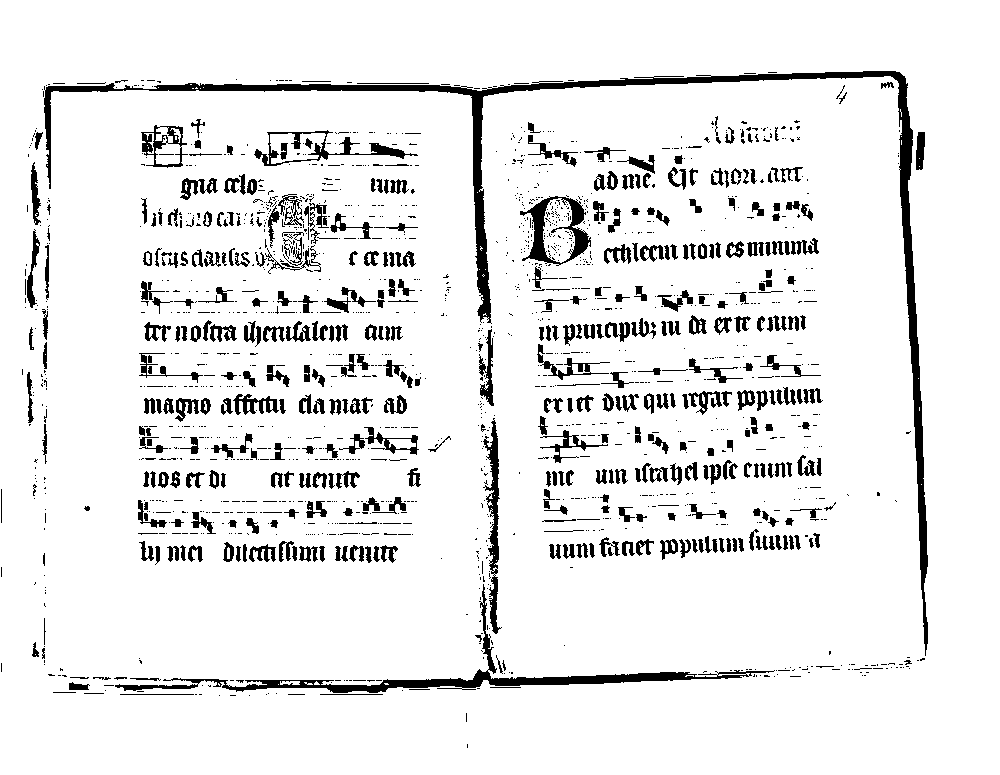 gna celo rum.
In choro cantat
ostijs clausis. E c ce ma
ter nostra iherusalem cum
magno affectu cla mat ad
nos et di cit uenite fi
lij mei dilectissimi uenite
4
ad me. Et chori. ant.
B ethleem non es minima
in principib; iu da ex te enim
ex iet dux qui regat populum
me um israhel ipse enim sal
uum faciet populum suum a